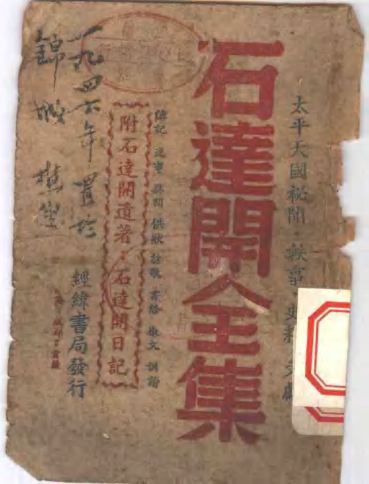 太平天國祕聞・軼事・史料・文獻
石達開全集
傳記 遺事 異聞 供狀 詩歌 書牘 檄文 訓諭
附石達開遺著：石達開日記
經緯書局發行
一九四六年置於
錦城